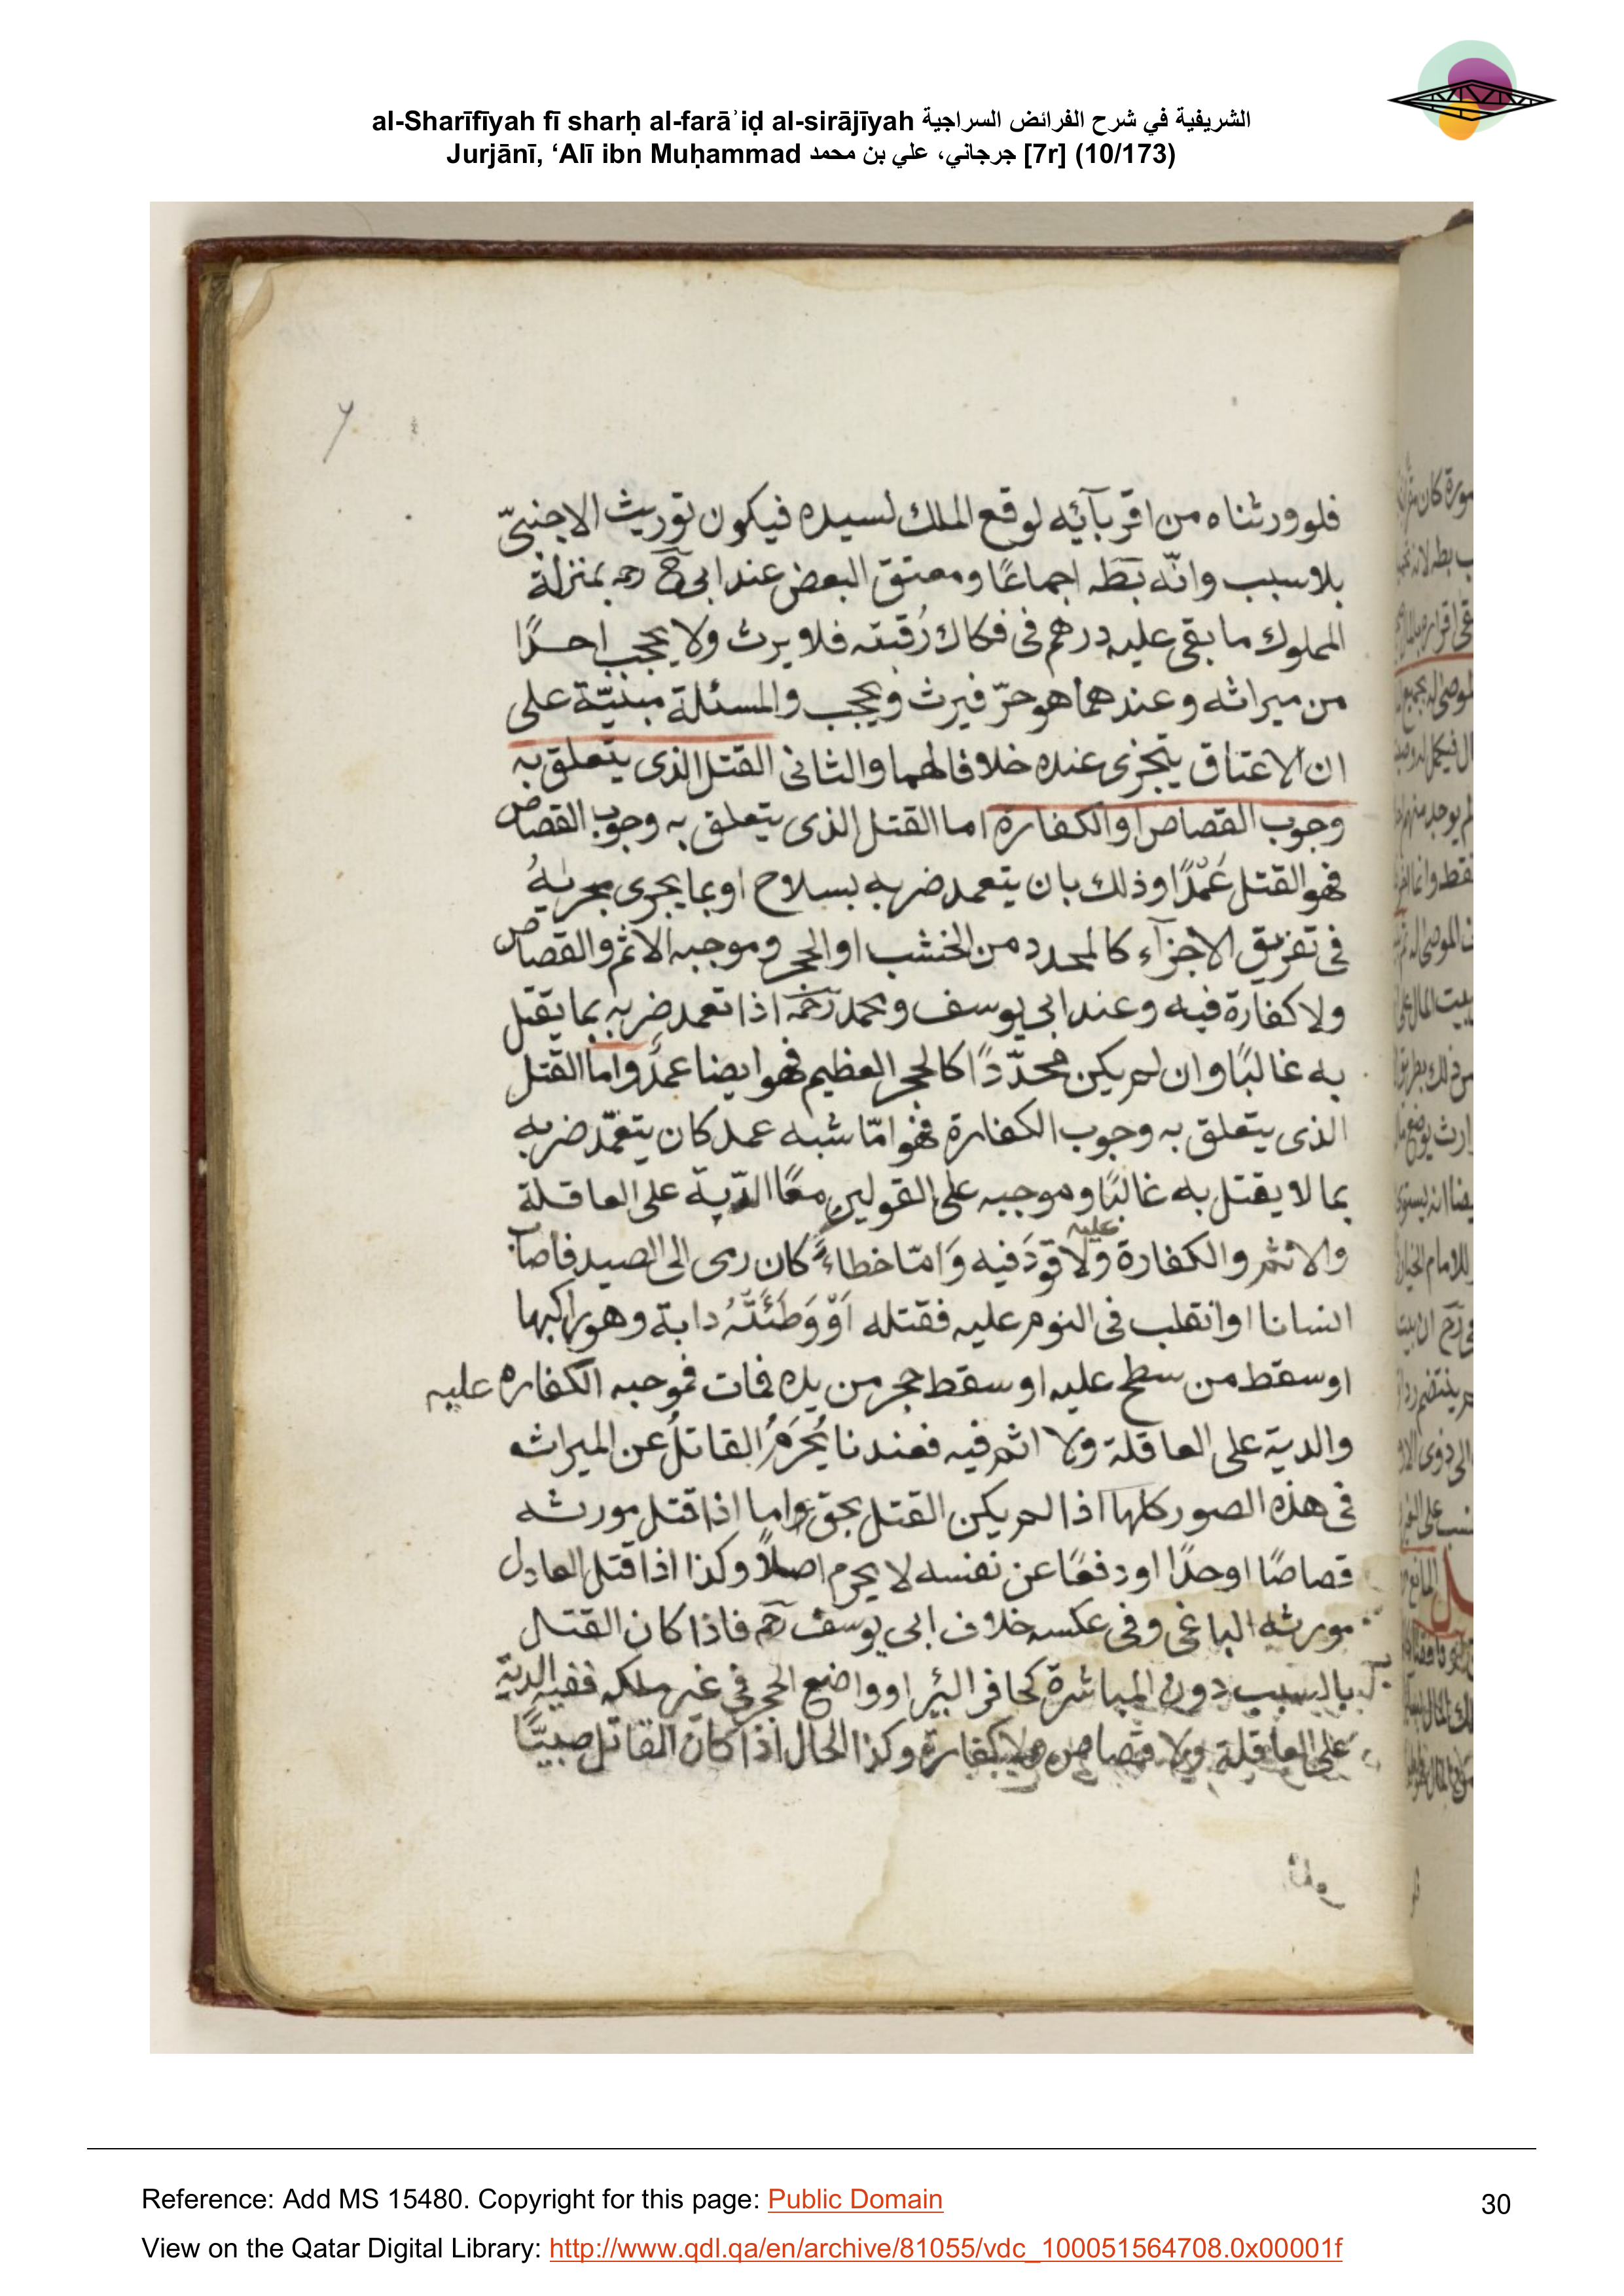 al-Sharīfīyah fī sharḥ al-farāʾiḍ al-sirājīyah الشريفية في شرح الفرائض السراجية
Jurjānī, ‘Alī ibn Muḥammad جرجاني، علي بن محمد [7r] (10/173)
فلو ورثناه من اقربآئه لوقع الملك لسيده فيكون توريث الاجنبىّ
بلا سبب وانّه بَطَه اجماعًا ومعتق البعض عند ابى ح رحمه بمنزلة
المملوك ما بقى عليه درهم فى فكاك رقبته فلا يرث ولا يحجب احدًا
من ميراثه وعندهما هو حرّ فيرث ويحجب والمسئلة مبنيّة على
ان الاعتاق يتجزى عنده خلافا لهما والثانى القتل الذى يتعلق به
وجوب القصاص او الكفارة اما القتل الذى يتعلق به وجوب القصاص
فهو القتل عَمْدًا وذلك بان يتعمد ضربه بسلاح او بما يجرى مجريهُ
فى تفريق الاجزآء كالمحدد من الخشب او الحجر وموجبه الاثم والقصاص
ولا كفارة فيه وعند ابى يوسف ومحمد رحمه اذا تعمد ضربه بما يقتل
به غالبًا وان لم يكن محدّدًا كالحجر العظيم فهو ايضا عمدٌ واما القتل
الذى يتعلق به وجوب الكفارة فهو امّا شبه عمد كان يتعمّد ضربه
بما لا يقتل به غالبًا وموجبه على القولين معًا الدّية على العاقلة
والاثم والكفارة عليه ولا قَوَدَ فيه وَامّا خطاءً كان رمى الى الصيد فاصاب
انسانا او انقلب فى النوم عليه فقتله اَوْ وَطَئَتْهُ دابة وهو راكبها
او سقط من سطح عليه او سقط حجر من يده فمات فموجبه الكفاره عليه
والدية على العاقلة ولا اثم فيه فعندنا يُحْرَمُ القاتلُ عن الميراث
فى هذه الصور كلها اذا لم يكن القتل بحق واما اذا قتل مورثه
قصاصًا او حدًا او دفعًا عن نفسه لا يحرم اصلاً وكذا اذا قتل العادل
مورثه الباغى وفى عكسه خلاف ابى يوسف رحمه فاذا كان القتل
بالسبب دون المباشرة كحافر البئر او واضع الحجر فى غير ملكه ففيه الدية
على العاقلة ولا قصاص ولا كفارة وكذا الحال اذا كان القاتل صبيًّا
Reference: Add MS 15480. Copyright for this page: Public Domain
30
View on the Qatar Digital Library: http://www.qdl.qa/en/archive/81055/vdc_100051564708.0x00001f